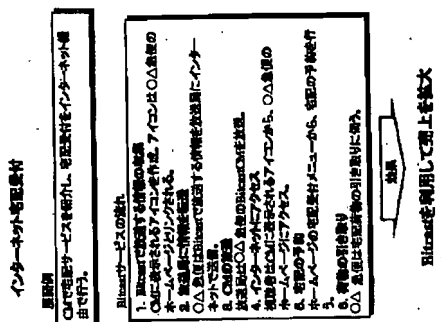 インターネット宅配受付
展開例
CMで宅配サービスを紹介し、宅配受付をインターネット経
由で行う。
Bitcastサービスの流れ
1. Bitcastで放送する情報の収集
CMに表示されるアイコンを作成。アイコンは○△急便の
ホームページとリンクされる。
2. 放送局に情報を転送
○△急便はBitcastで放送する情報を放送局にインター
ネットで送信。
3. CMの放送
放送局は○△急便のBitcastCMを放送。
4. インターネットにアクセス
視聴者はCMに表示されるアイコンから、○△急便の
ホームページにアクセス。
5. 宅配の予約
ホームページの宅配受付メニューから、宅配の予約を行
う。
6. 荷物の引き取り
○△急便は宅配荷物の引き取りに伺う。
効果
Bitcastを利用して売上を拡大